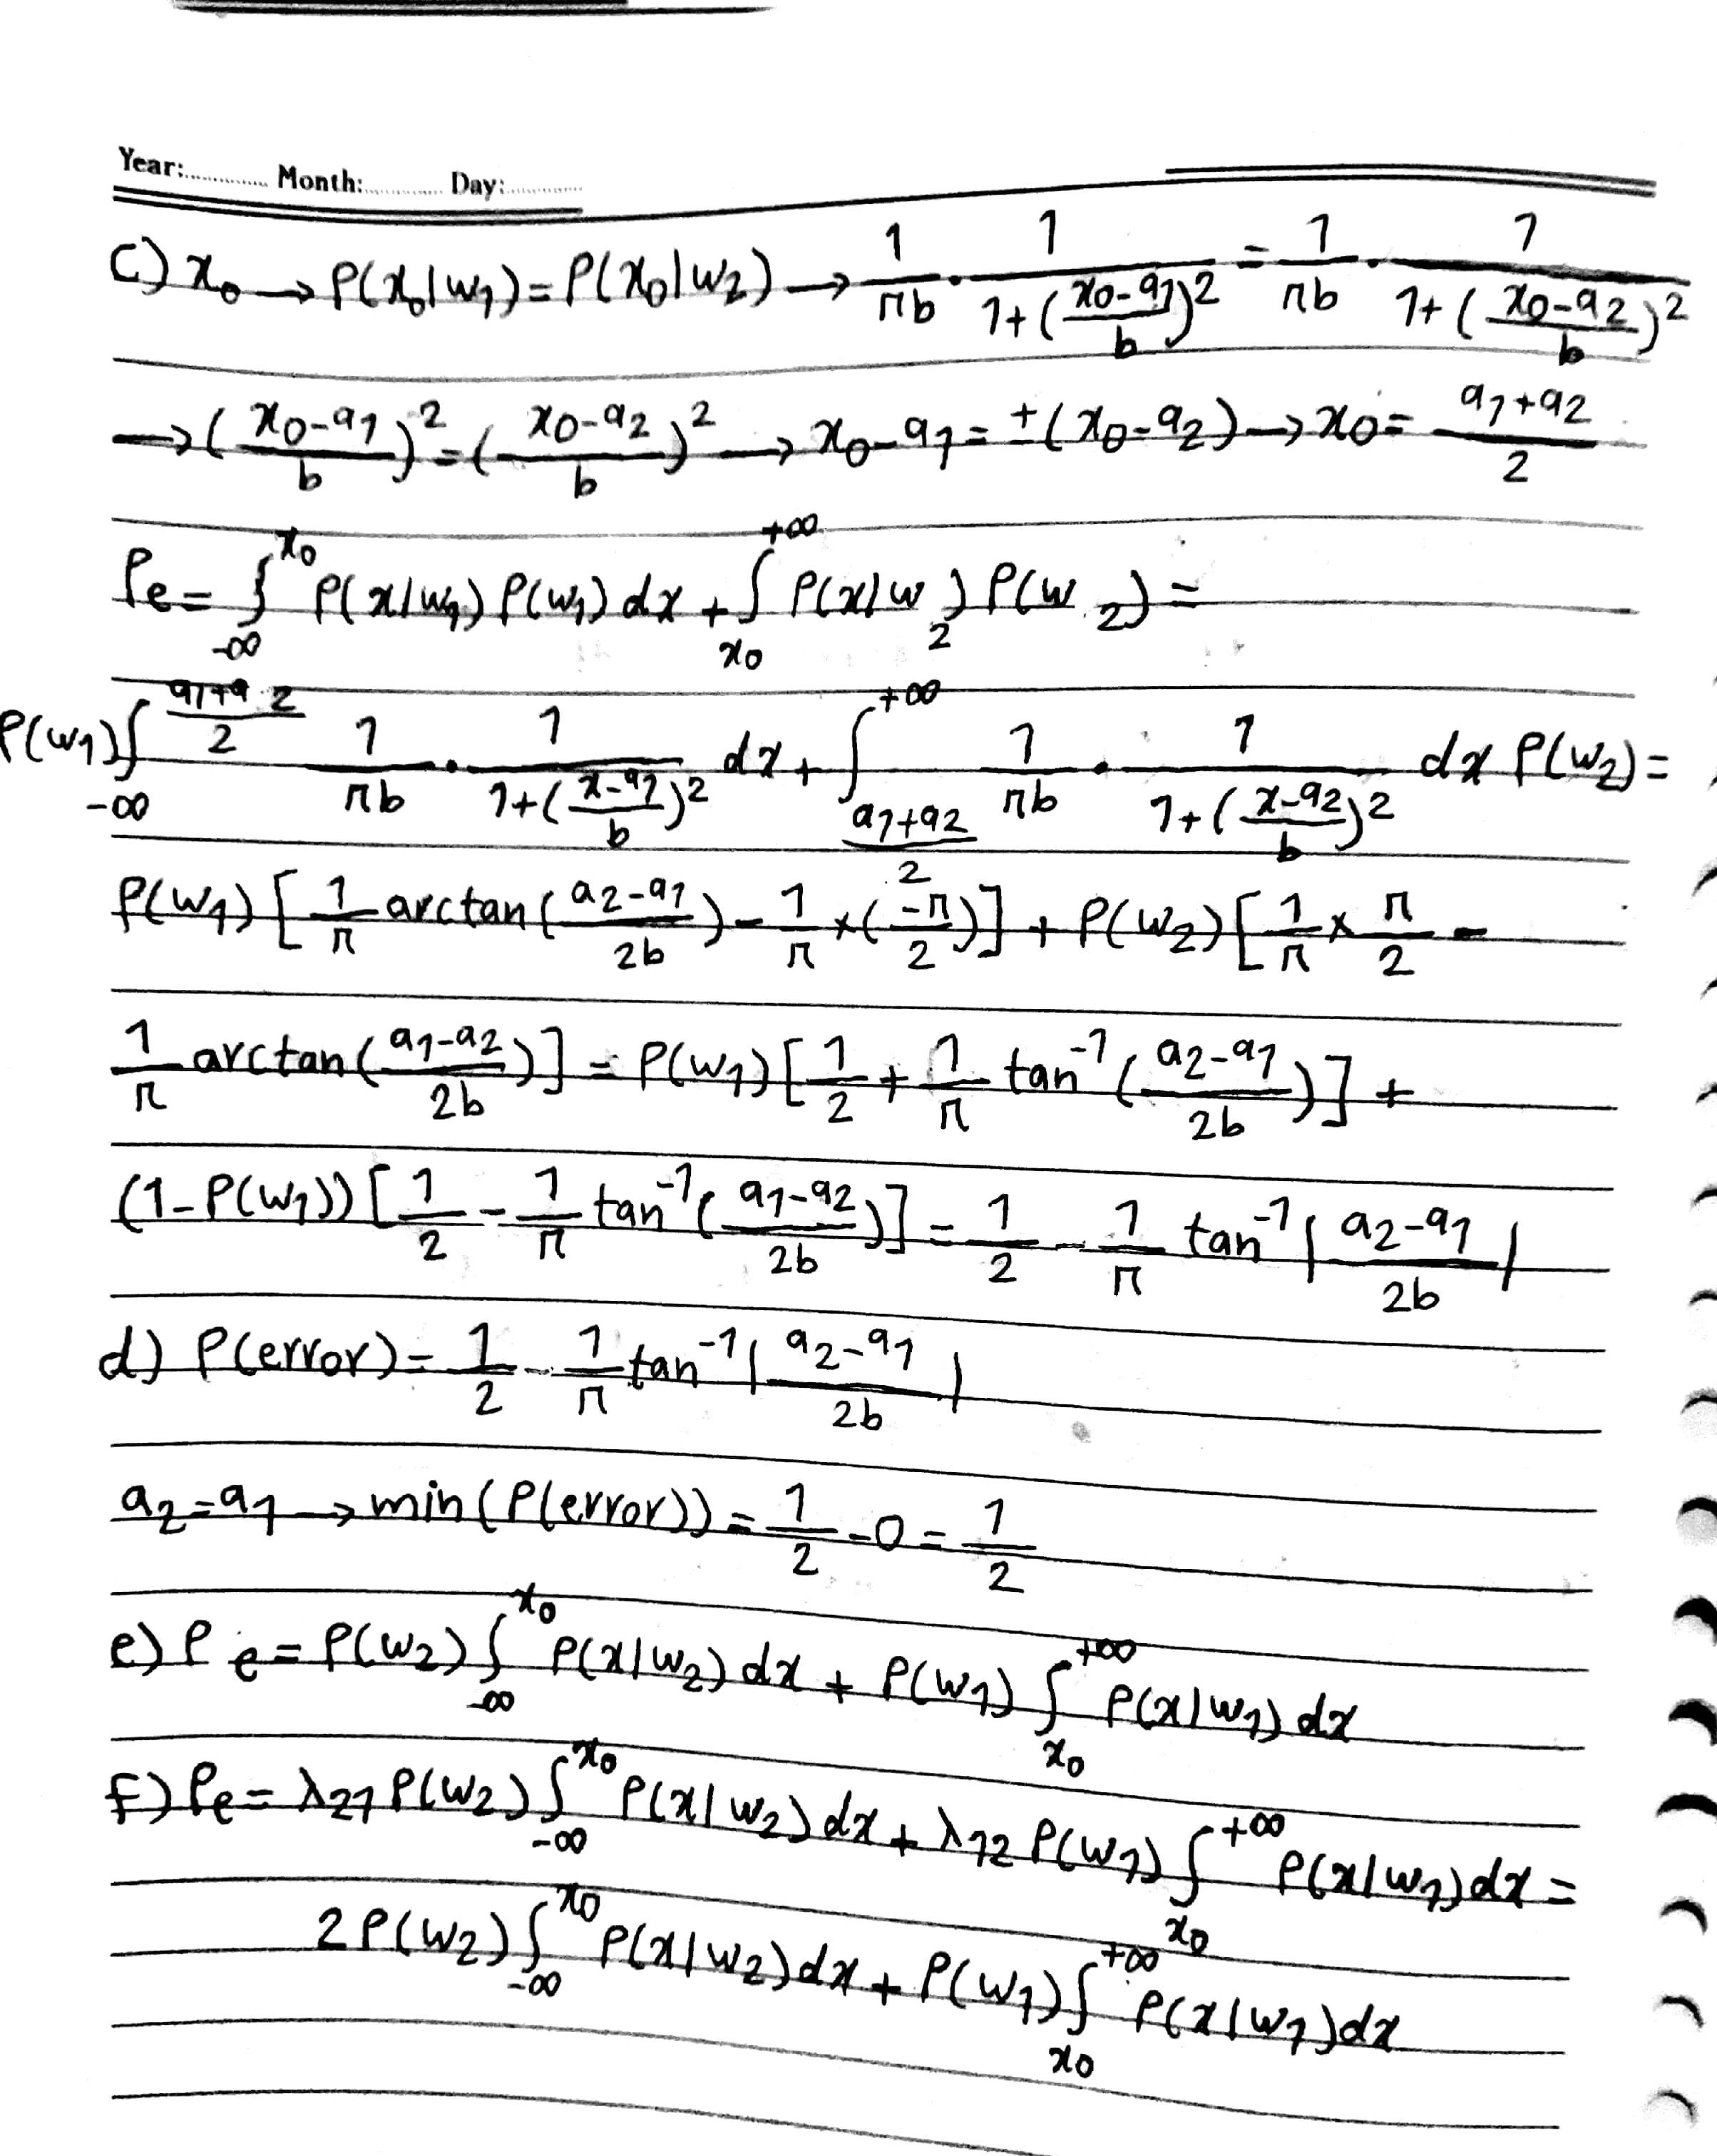 Year:............. Month:............. Day:.............
c) x₀ → P(x₀|w₁) = P(x₀|w₂) → 1/πb · 1/(1+((x₀-a₁)/b)²) = 1/πb · 1/(1+((x₀-a₂)/b)²)
→ ((x₀-a₁)/b)² = ((x₀-a₂)/b)² → x₀-a₁ = ±(x₀-a₂) → x₀ = (a₁+a₂)/2
Pe = ∫_{-∞}^{x₀} P(x|w₁) P(w₁) dx + ∫_{x₀}^{+∞} P(x|w₂) P(w₂) =
P(w₁) ∫_{-∞}^{(a₁+a₂)/2} 1/πb · 1/(1+((x-a₁)/b)²) dx + ∫_{(a₁+a₂)/2}^{+∞} 1/πb · 1/(1+((x-a₂)/b)²) dx P(w₂) =
P(w₁) [1/π arctan((a₂-a₁)/2b) - 1/π × (-π/2)] + P(w₂) [1/π × π/2 -
1/π arctan((a₁-a₂)/2b)] = P(w₁) [1/2 + 1/π tan⁻¹((a₂-a₁)/2b)] +
(1-P(w₁)) [1/2 - 1/π tan⁻¹((a₁-a₂)/2b)] = 1/2 - 1/π tan⁻¹|(a₂-a₁)/2b|
d) P(error) = 1/2 - 1/π tan⁻¹|(a₂-a₁)/2b|
a₂=a₁ → min(P(error)) = 1/2 - 0 = 1/2
e) Pe = P(w₂) ∫_{-∞}^{x₀} P(x|w₂) dx + P(w₁) ∫_{x₀}^{+∞} P(x|w₁) dx
f) Pe = λ₂₁ P(w₂) ∫_{-∞}^{x₀} P(x|w₂) dx + λ₁₂ P(w₁) ∫_{x₀}^{+∞} P(x|w₁) dx =
2P(w₂) ∫_{-∞}^{x₀} P(x|w₂) dx + P(w₁) ∫_{x₀}^{+∞} P(x|w₁) dx